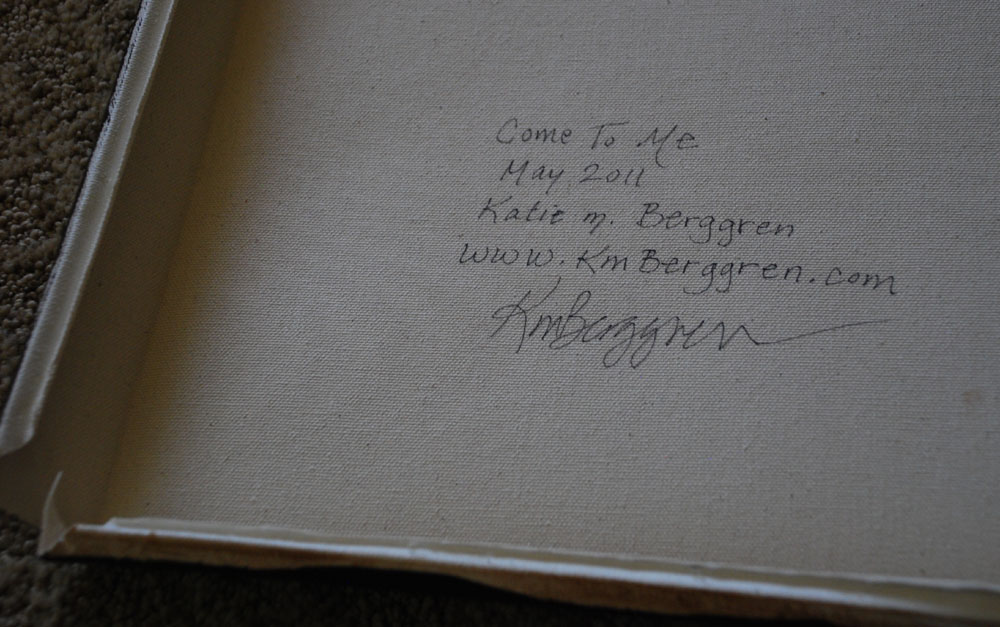 Come To Me
May 2011
Katie m. Berggren
www.KmBerggren.com
KmBerggren